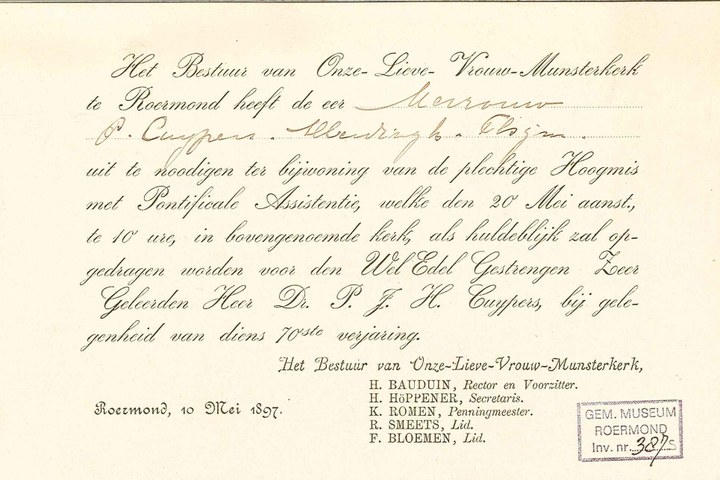 Het Bestuur van Onze-Lieve-Vrouw-Munsterkerk
te Roermond heeft de eer Mevrouw
P. Cuypers.
uit te noodigen ter bijwoning van de plechtige Hoogmis
met Pontificale Assistentie, welke den 20 Mei aanst.,
te 10 ure, in bovengenoemde kerk, als huldeblijk zal op-
gedragen worden voor den Wel Edel Gestrengen Zeer
Geleerden Heer Dr. P. J. H. Cuypers, bij gele-
genheid van diens 70ste verjaring.
Het Bestuur van Onze-Lieve-Vrouw-Munsterkerk,
H. BAUDUIN, Rector en Voorzitter.
H. HöPPENER, Secretaris.
K. ROMEN, Penningmeester.
R. SMEETS, Lid.
F. BLOEMEN, Lid.
Roermond, 10 Mei 1897.
GEM. MUSEUM
ROERMOND
Inv. nr.